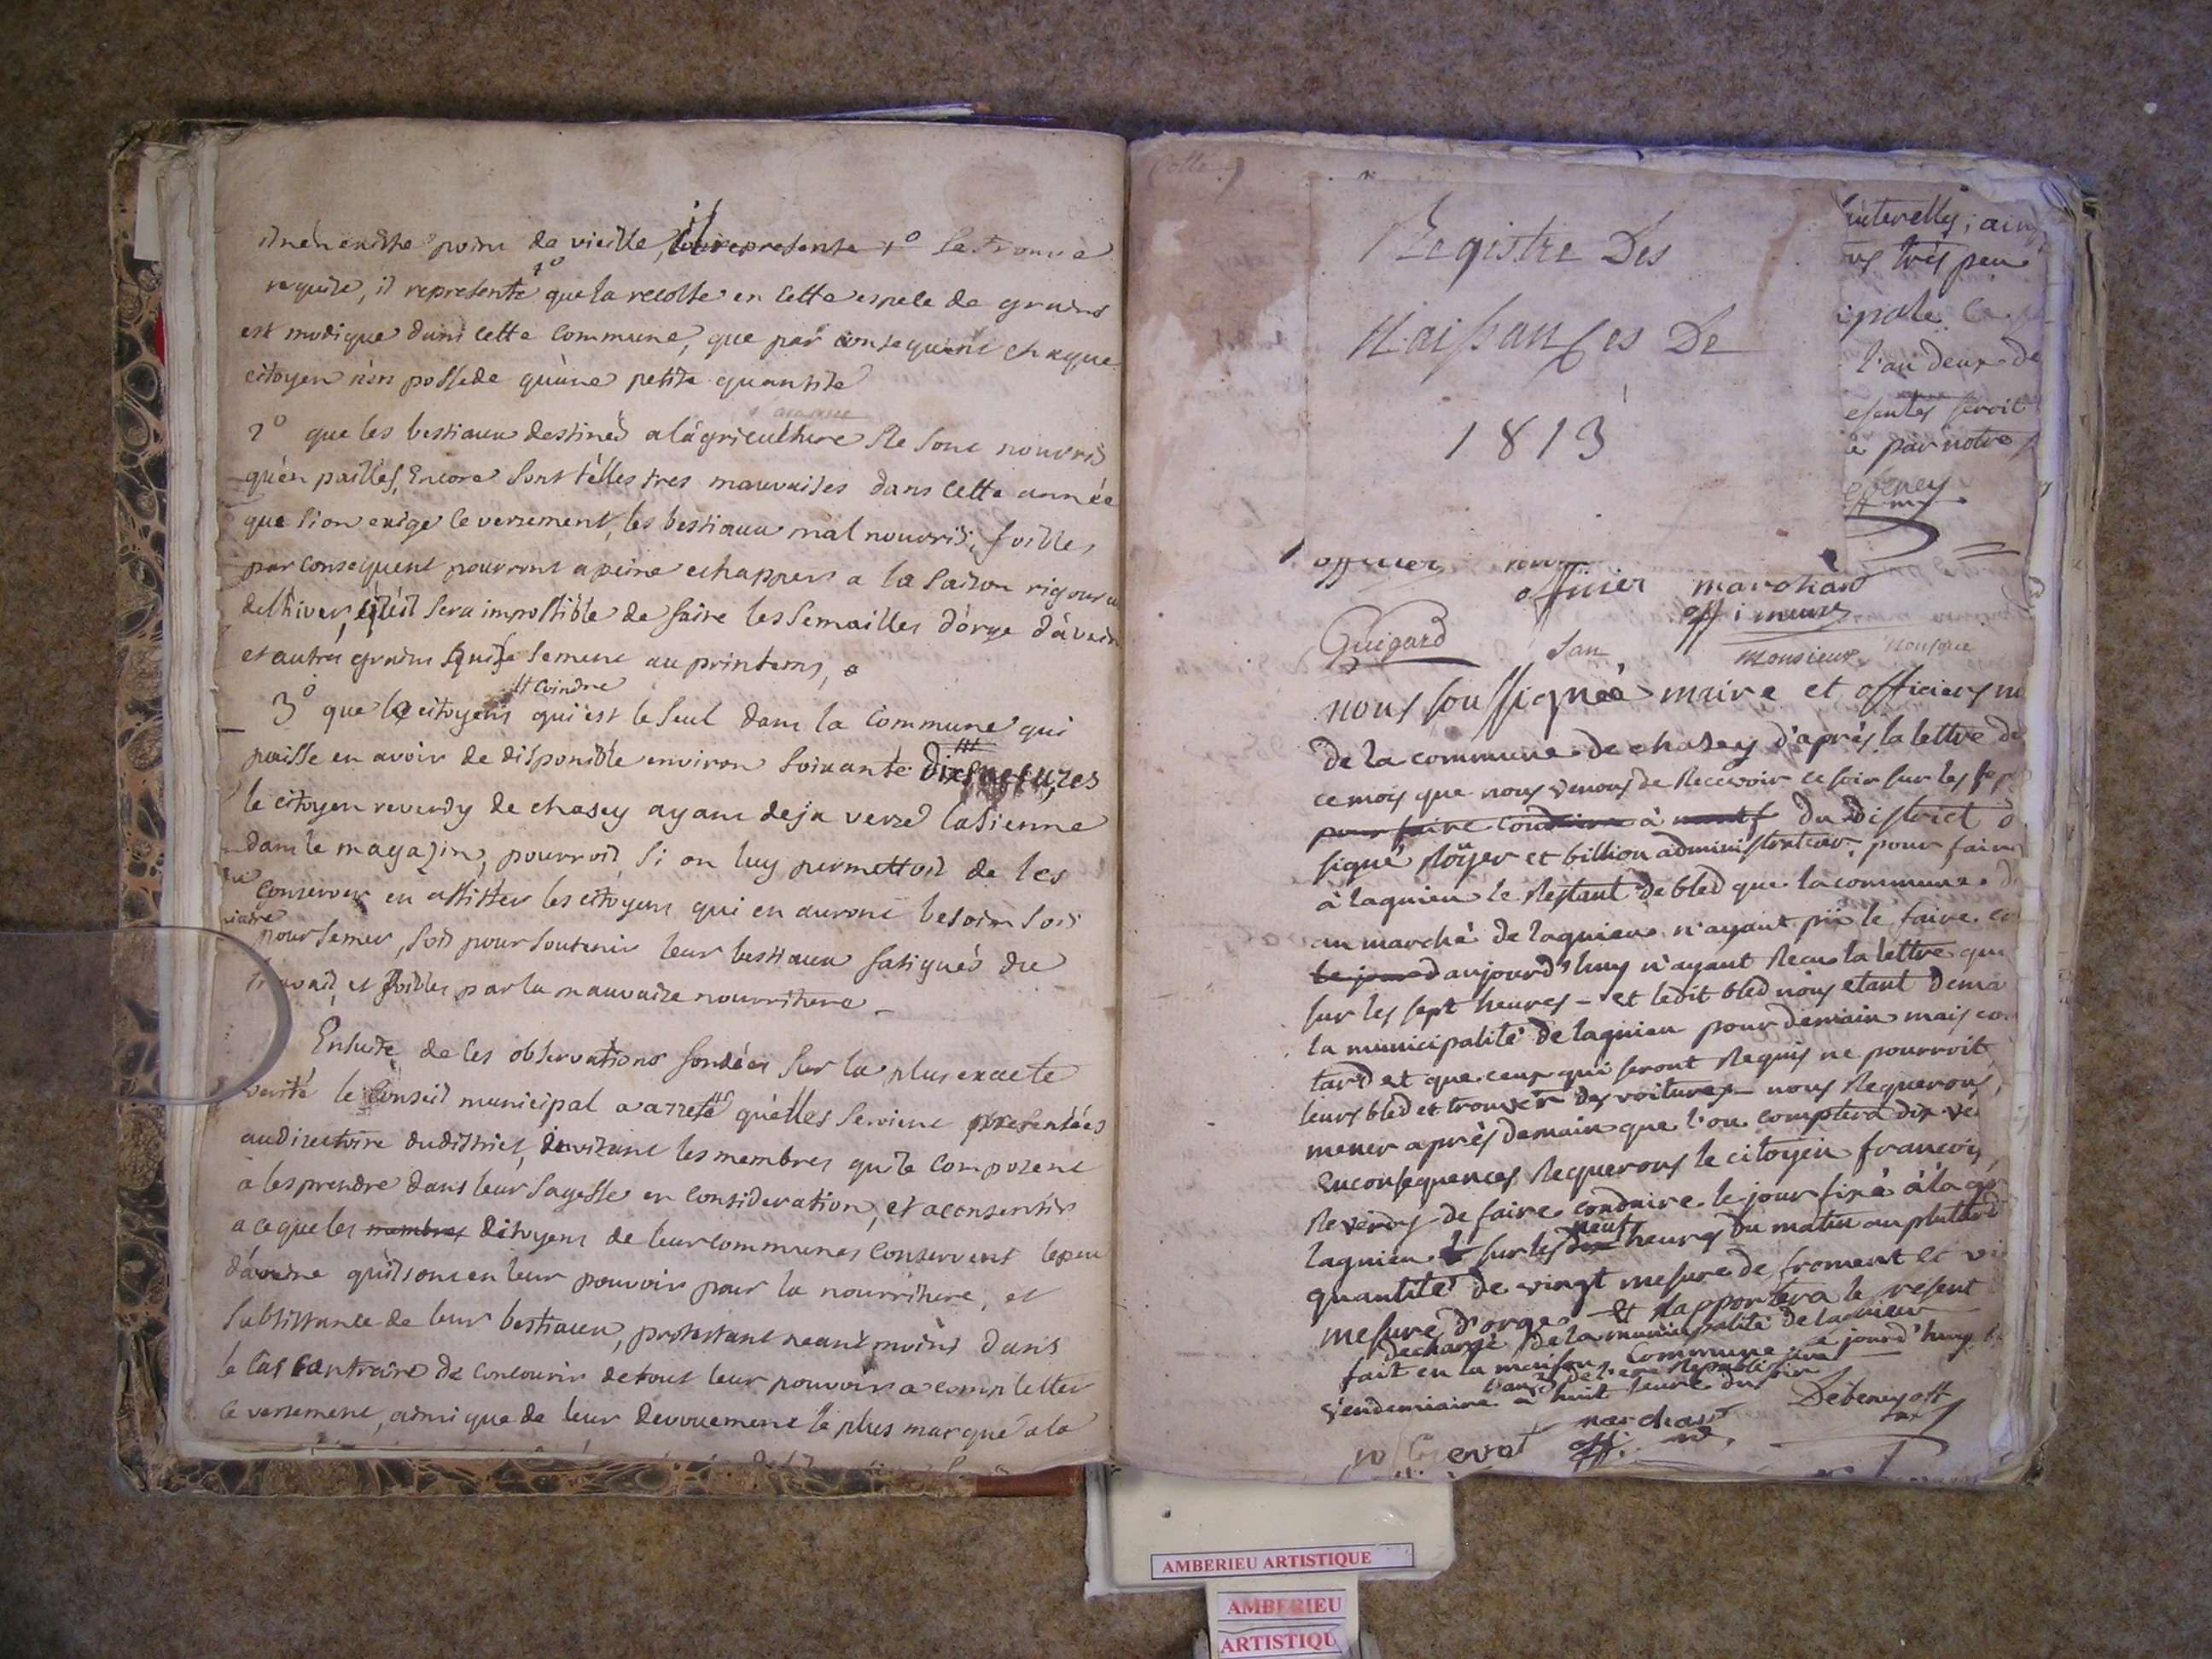 il n'en existe point de vieille, il represente 1° se trouve
requise, il represente 1° que la recolte en cette espece de grains
est modique dans cette commune, que par consequent chaque
citoyen n'en possede qu'une petite quantité
2° que les bestiaux destinés a lágriculture ne sont nourris
qu'en pailles, Encore sont t'elles tres mauvaises dans cette année
que si on exige le versement, les bestiaux mal nourris, foibles
par consequent pourront a peine echapper a la saison rigoureu
de l'hiver, et il sera impossible de faire les semailles d'orge d'avein
et autres grains qui se sement au printems,
3° que le citoyen Coindre qui est le seul dans la commune qui
puisse en avoir de disponible environ soixante dix mesures
le citoyen reverdy de chasey ayant deja versé la sienne
dans le magazin, pourroit si on luy permettoit de les
conserver en assister les citoyens qui en auront besoin soit
pour semer, soit pour soutenir leur bestiaux fatigués du
travail, et foibles par la mauvaise nourriture _
Ensuite de ces observations fondées sur la plus exacte
verité le Conseil municipal a arreté qu'elles seroient presentées
au directoire du district, invitant les membres qui le composent
a les prendre dans leur sagesse en consideration, et a consentir
a ce que les membres citoyens de leur communes conservent le peu
d'aveine qu'ils ont en leur pouvoir pour la nourriture, et
subsistance de leur bestiaux, protestant neantmoins dans
le cas contraire de concourir de tout leur pouvoir a completter
ce versement, ainsi que de leur devouement le plus marqué a la
Registre Des
Naissances De
1813
très peu
l'an deux de
seroit
par notre
officier
officier marchand
off i mun
Guigard
Monsieur
nous soussignéé maire et officiers m
de la commune de chasey d'après la lettre de
ce mois que nous venons de Recevoir ce soir sur les sep
pour faire conduire à du District d
signé Royer et billion administrateur, pour faire
à lagnieu le Restant de bled que la commune d
au marché de lagnieu n'ayant pu le faire
le jour d'aujourd'huy n'ayant Recu la lettre que
sur les sept heures - et ledit bled nous etant dema
la municipalité de lagnieu pour demain mais co
tard et que ceux qui seront Requis ne pourroit
leurs bled et trouver des voitures - nous Requerons
mener après demain que l'on comptera dix ve
En consequences Requerons le citoyen francois
Reverdy de faire conduire le jour fixé à la
lagnieu sur les dix neuf heures du matin au plutard
quantité de vingt mesure de froment et vi
mesure d'orge et Rapportera le resent
decharge de la municipalité de lagnieu
fait en la maison Commune ce jourd'huy
l'an 3 de l'ere Republicaine
vendemiaire a huit heure du soir
Debeney off
marchand
off. m.
AMBERIEU ARTISTIQUE
AMBERIEU
ARTISTIQU